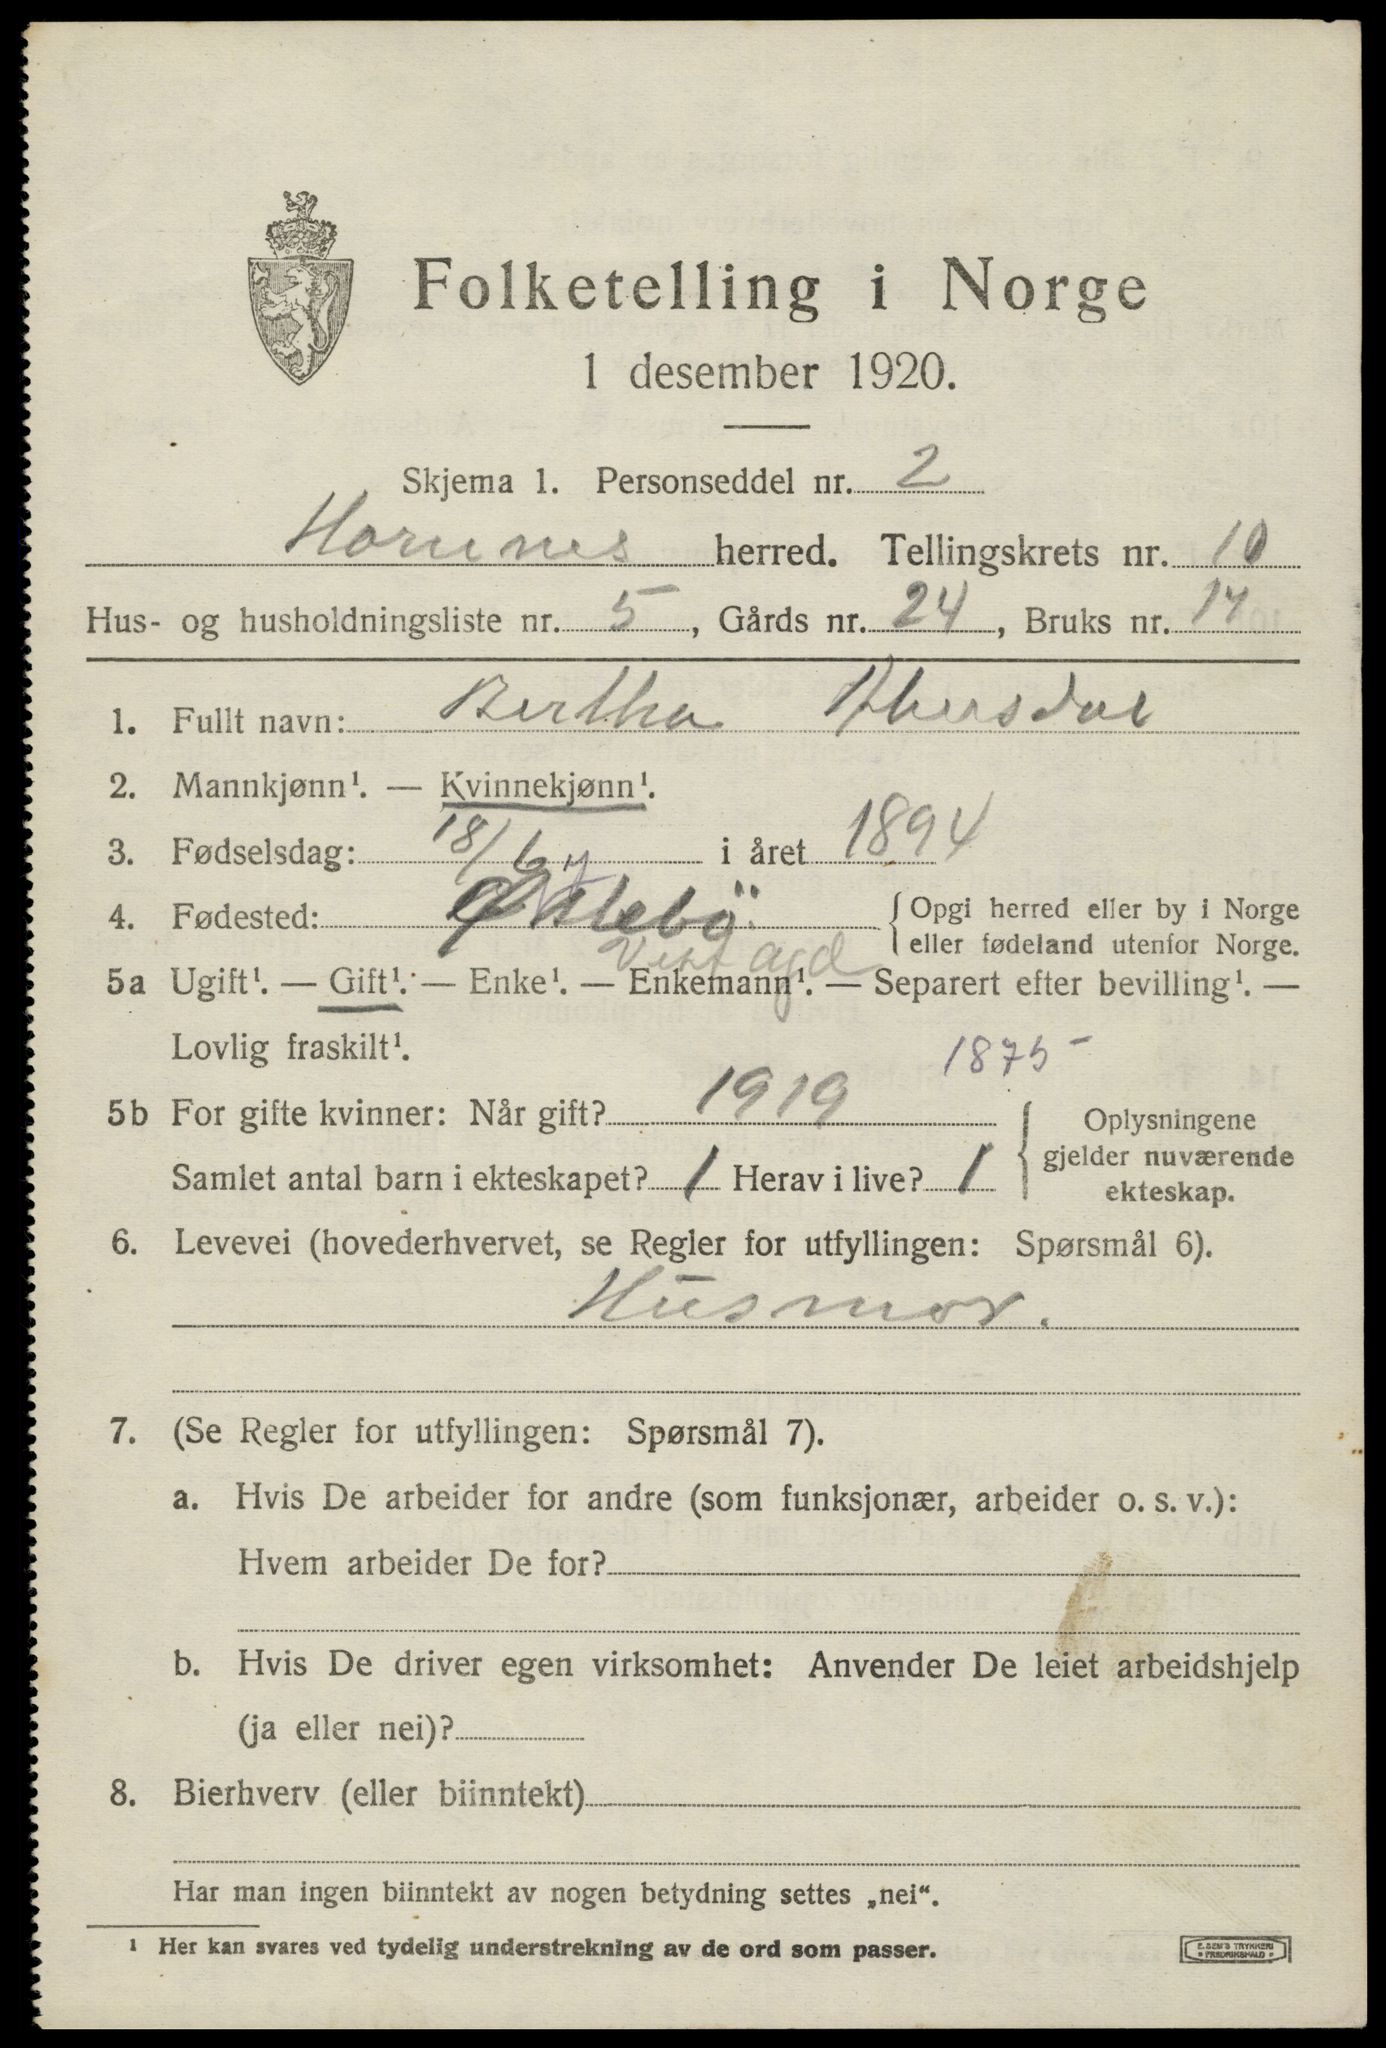 Folketelling i Norge
1 desember 1920.
Skjema 1. Personseddel nr. 2
Hornnes herred. Tellingskrets nr. 10
Hus- og husholdningsliste nr. 5, Gårds nr. 24, Bruks nr. 14
1. Fullt navn: Bertha
2. Mannkjønn¹. — Kvinnekjønn¹.
3. Fødselsdag: 18/6 i året 1894
4. Fødested: { Opgi herred eller by i Norge
eller fødeland utenfor Norge.
Vest agd
5a Ugift¹. — Gift¹. — Enke¹. — Enkemann¹. — Separert efter bevilling¹. —
Lovlig fraskilt¹.
1875
5b For gifte kvinner: Når gift? 1919
Samlet antal barn i ekteskapet? 1 Herav i live? 1
{ Oplysningene
gjelder nuværende
ekteskap.
6. Levevei (hovederhvervet, se Regler for utfyllingen: Spørsmål 6).
Husmor.
7. (Se Regler for utfyllingen: Spørsmål 7).
a. Hvis De arbeider for andre (som funksjonær, arbeider o. s. v.):
Hvem arbeider De for?
b. Hvis De driver egen virksomhet: Anvender De leiet arbeidshjelp
(ja eller nei)?
8. Bierhverv (eller biinntekt)
Har man ingen biinntekt av nogen betydning settes „nei“.
¹ Her kan svares ved tydelig understrekning av de ord som passer.
E. SEM'S TRYKKERI
FREDRIKSHALD